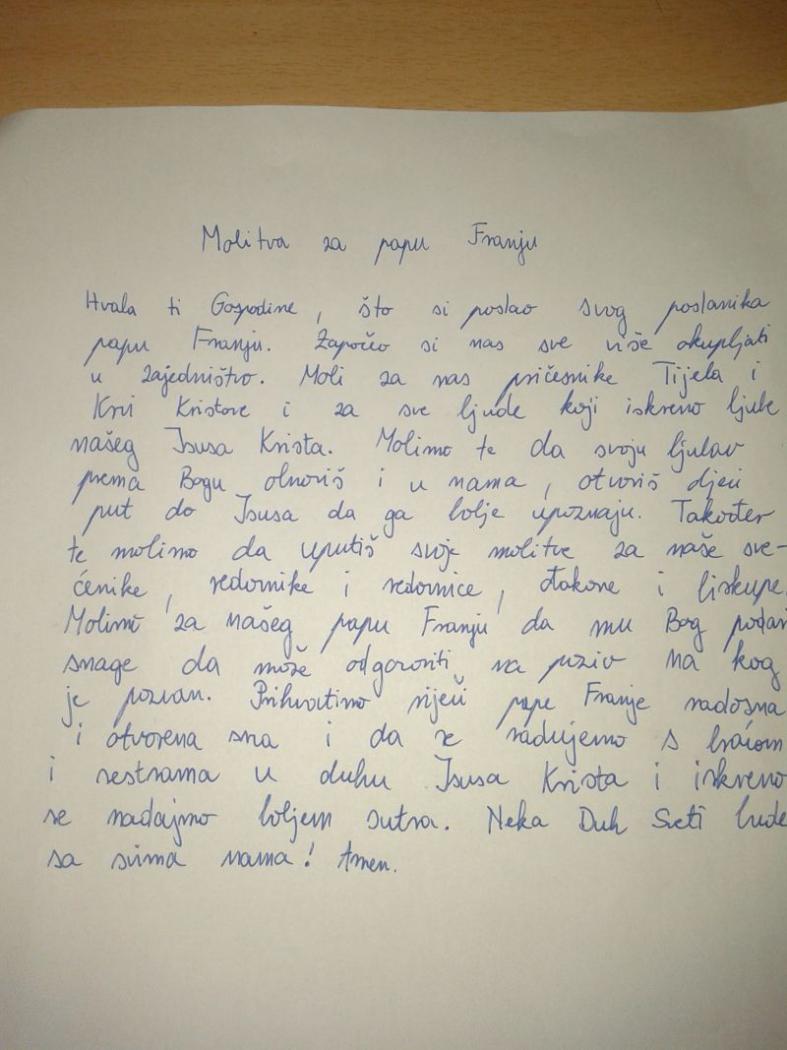 Molitva za papu Franju
Hvala ti Gospodine, što si poslao svog poslanika
papu Franju. Započeo si nas sve više okupljati
u zajedništvo. Moli za nas pričesnike Tijela i
Krvi Kristove i za sve ljude koji iskreno ljube
našeg Isusa Krista. Molimo te da svoju ljubav
prema Bogu obnoviš i u nama, otvoriš djeci
put do Isusa da ga bolje upoznaju. Također
te molimo da uputiš svoje molitve za naše sve-
ćenike, redovnike i redovnice, đakone i biskupe.
Molimo za našeg papu Franju da mu Bog podari
snage da može odgovoriti na poziv na kog
je pozvan. Prihvatimo riječi pape Franje radosna
i otvorena srca i da se radujemo s braćom
i sestrama u duhu Isusa Krista i iskreno
se nadajmo boljem sutra. Neka Duh Sveti bude
sa svima nama! Amen.